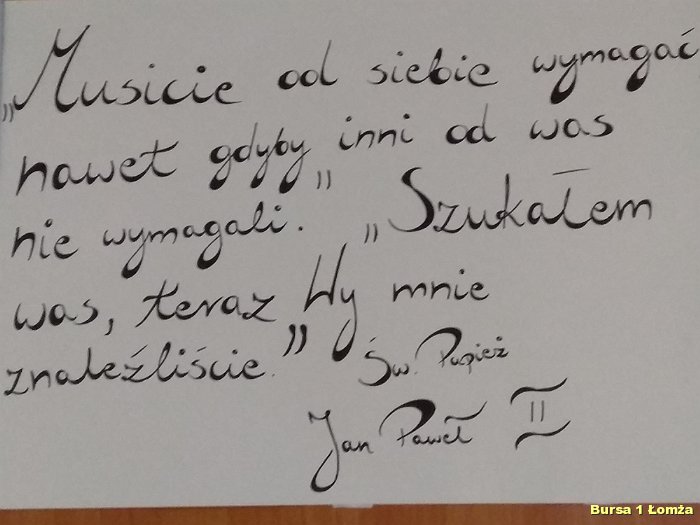 „Musicie od siebie wymagać
nawet gdyby inni od was
nie wymagali." „Szukałem
was, teraz Wy mnie
znaleźliście."
Św. Papież
Jan Paweł II
Bursa 1 Łomża